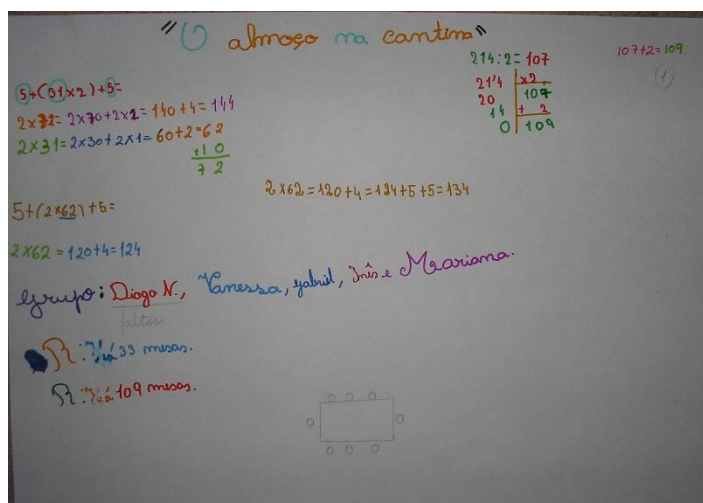 "O almoço na cantina"
214:2=107
107+2=109
1
5+(31x2)+5=
214 x2
20 107
14 + 2
0 109
2x72=2x70+2x2=140+4=144
2x31=2x30+2x1=60+2=62
+10
72
2x62=120+4=124+5+5=134
5+(2x62)+5=
2x62=120+4=124
Grupo: Diogo N., Vanessa, gabriel, Inês e Mariana.
faltou
R: Há 33 mesas.
R: Há 109 mesas.